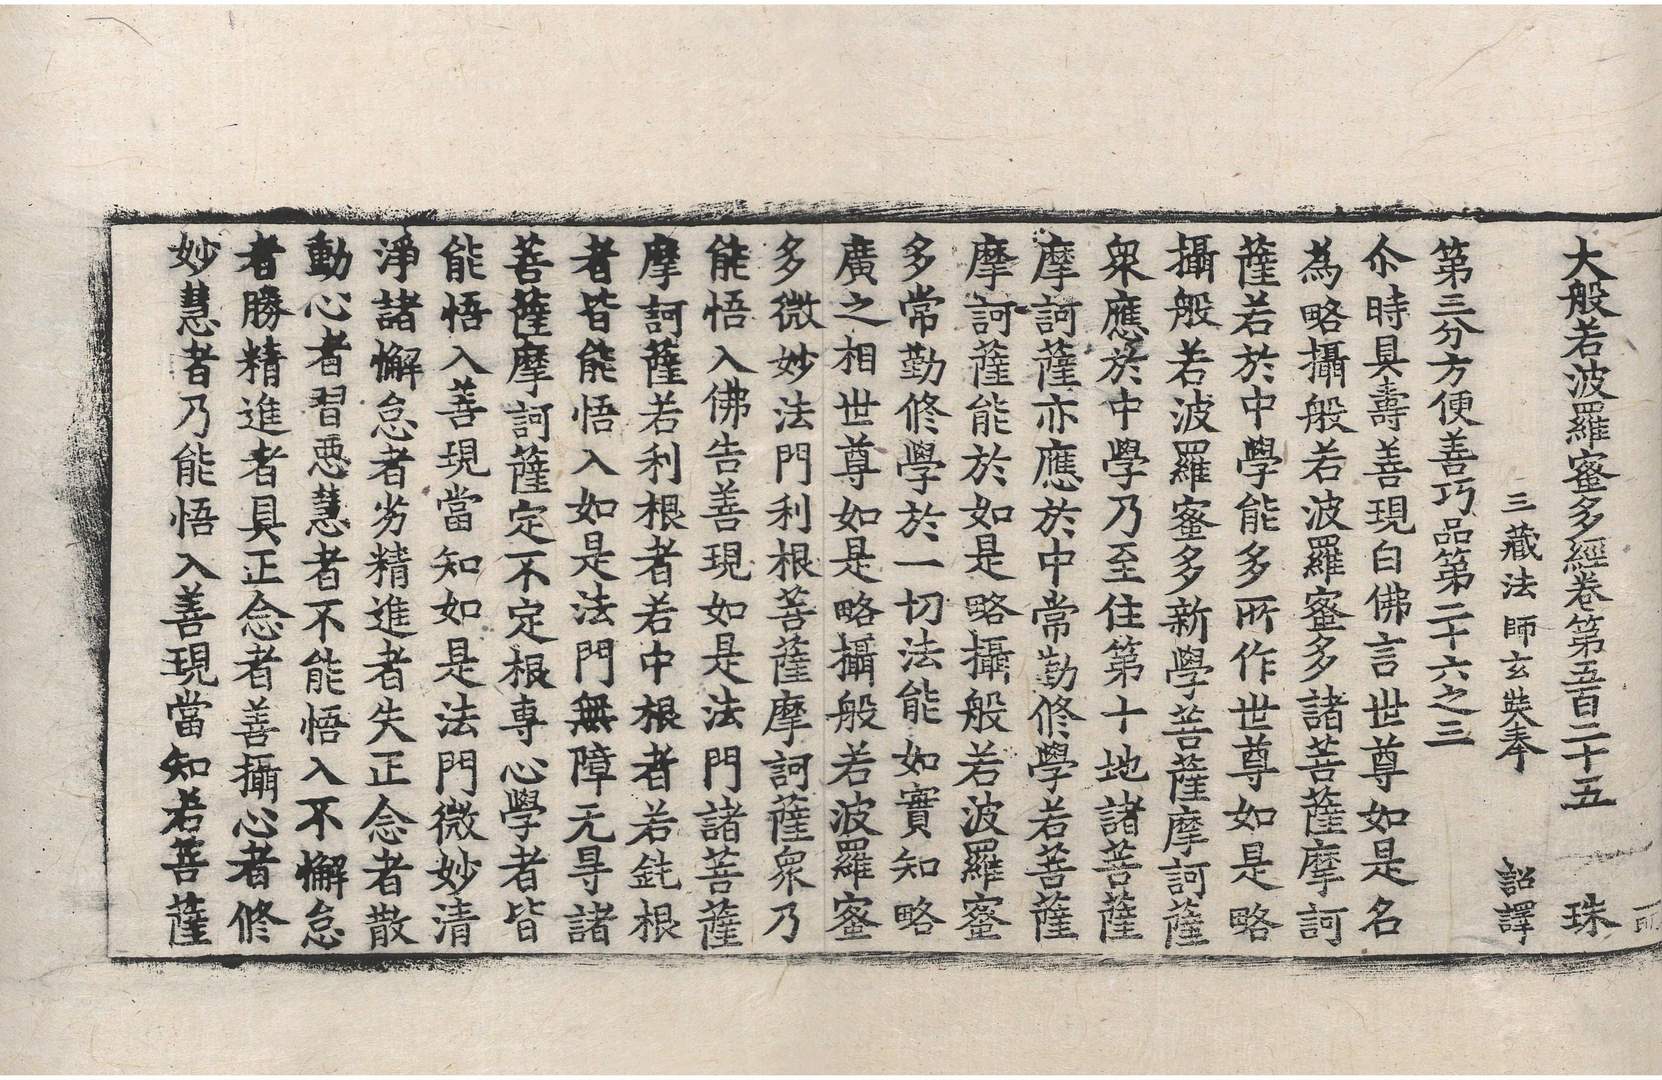 大般若波羅蜜多經卷第五百二十五 珠
三藏法師玄奘奉 詔譯
第三分方便善巧品第二十六之三
尒時具壽善現白佛言世尊如是名
為略攝般若波羅蜜多諸菩薩摩訶
薩若於中學能多所作世尊如是略
攝般若波羅蜜多新學菩薩摩訶薩
衆應於中學乃至住第十地諸菩薩
摩訶薩亦應於中常勤修學若菩薩
摩訶薩能於如是略攝般若波羅蜜
多常勤修學於一切法能如實知略
廣之相世尊如是略攝般若波羅蜜
多微妙法門利根菩薩摩訶薩衆乃
能悟入佛告善現如是法門諸菩薩
摩訶薩若利根者若中根者若鈍根
者皆能悟入如是法門無障无㝵諸
菩薩摩訶薩定不定根專心學者皆
能悟入善現當知如是法門微妙清
淨諸懈怠者劣精進者失正念者散
動心者習惡慧者不能悟入不懈怠
者勝精進者具正念者善攝心者修
妙慧者乃能悟入善現當知若菩薩